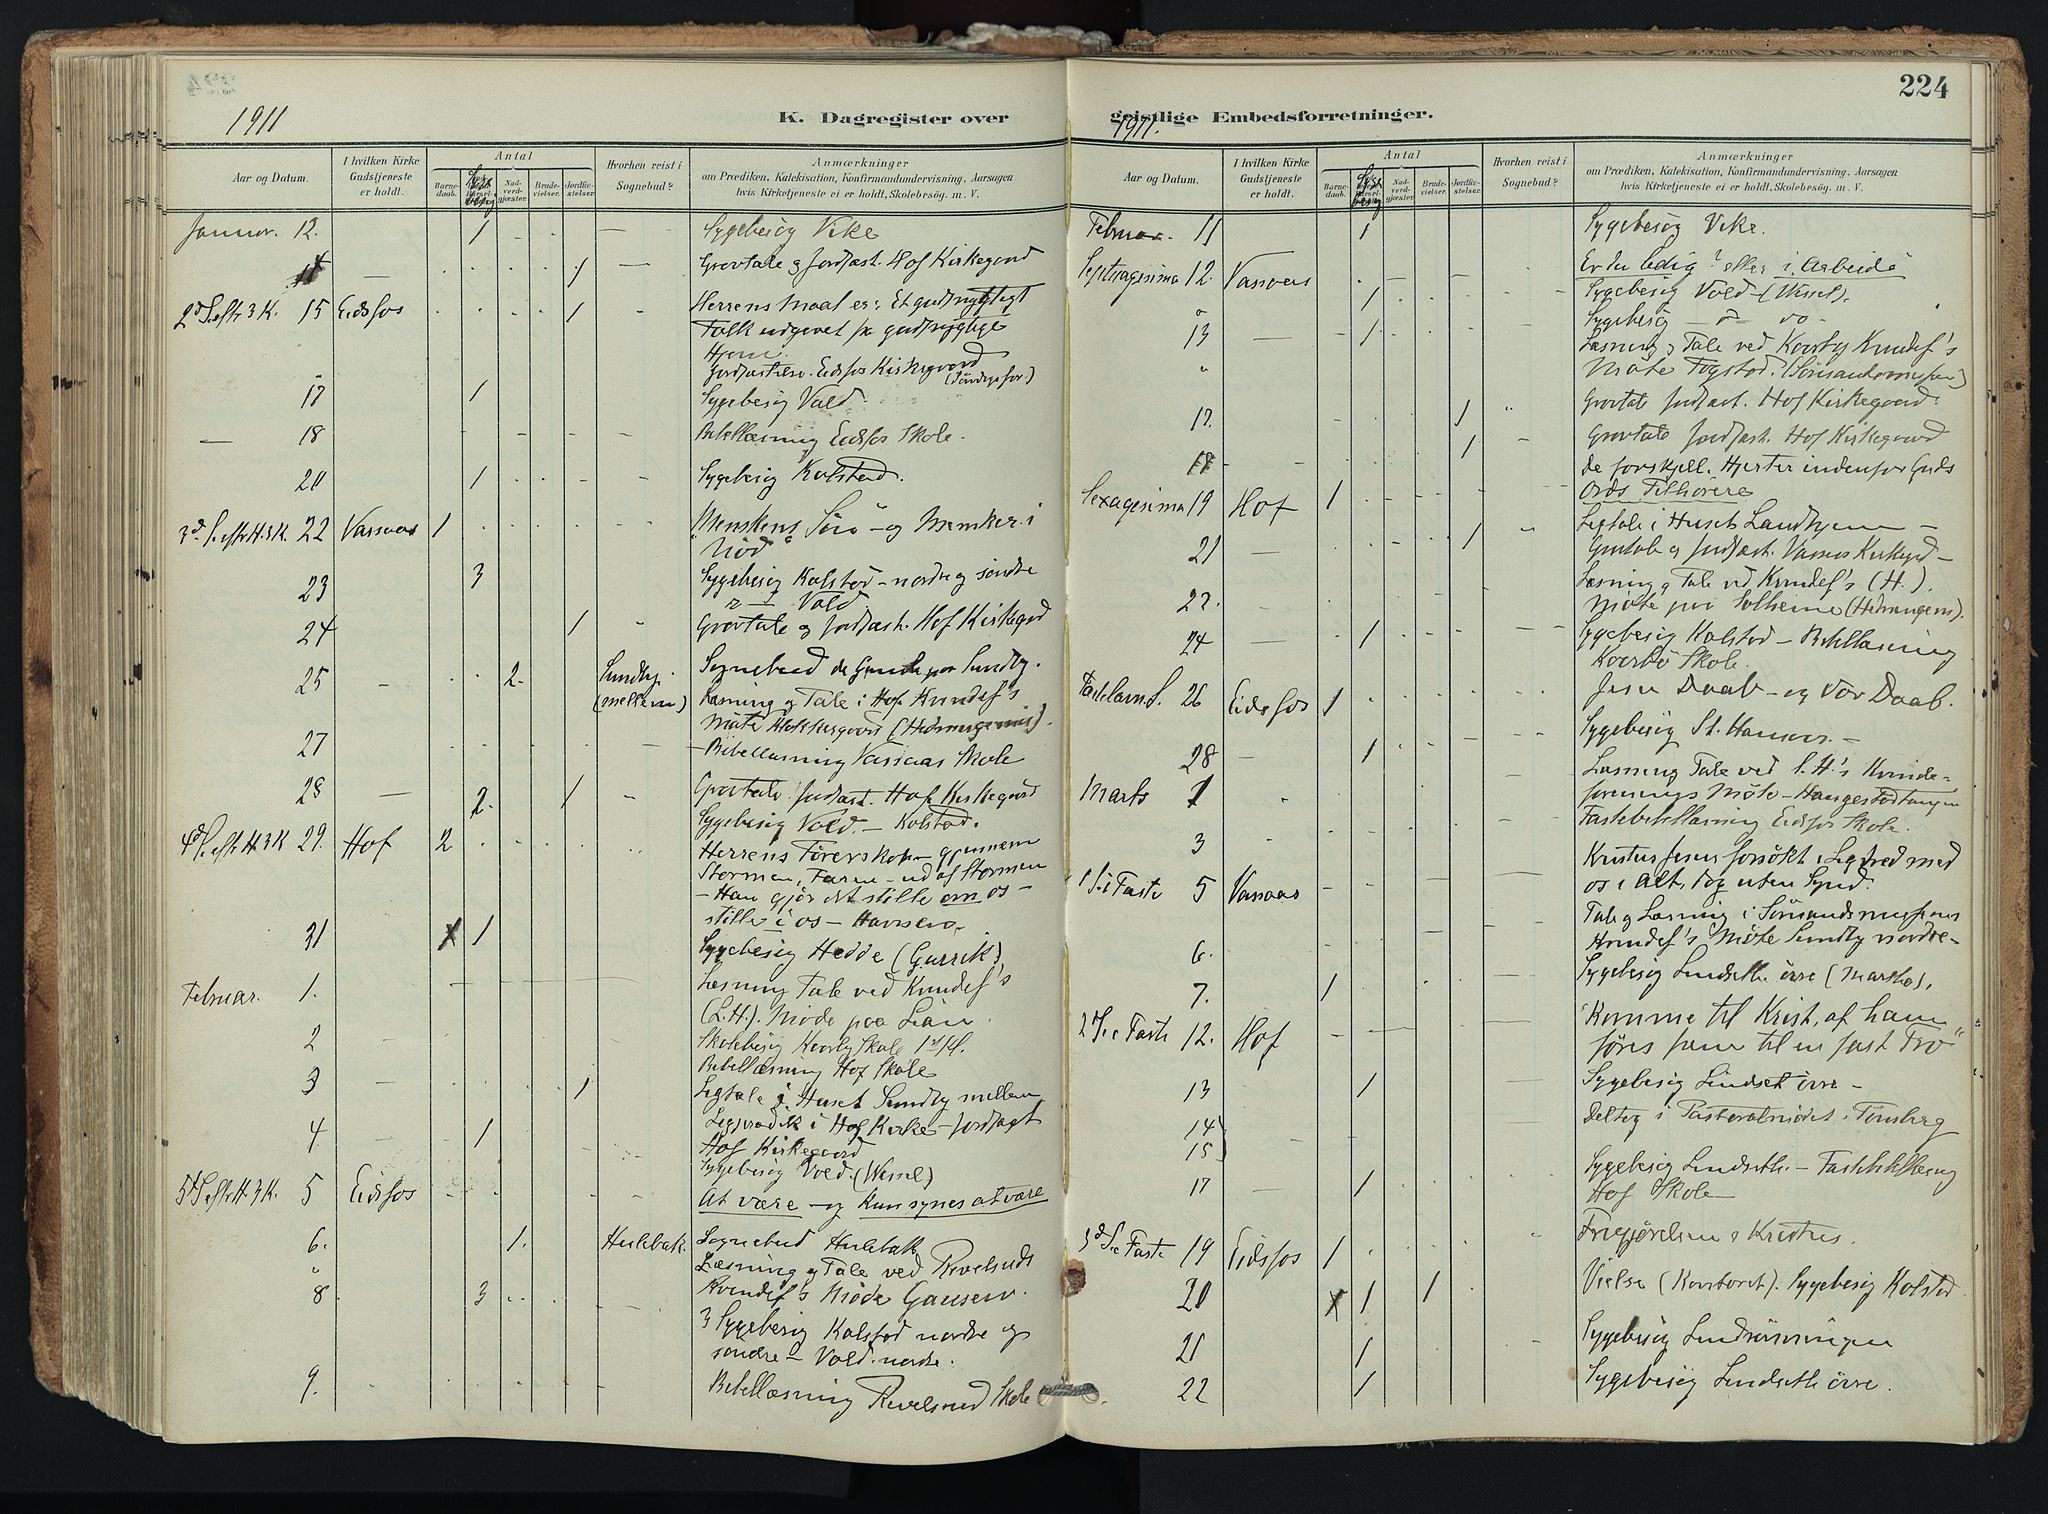 224
1911
K. Dagregister over
Aar og Datum.
I hvilken Kirke Gudstjeneste er holdt.
Antal
Barnedaab.
Sygebesøg
Nadverdgjæster.
Brudevielser.
Jordfæstelser.
Hvorhen reist i Sognebud?
Anmærkninger
om Prædiken, Katekisation, Konfirmandundervisning, Aarsagen
hvis Kirketjeneste ei er holdt, Skolebesøg. m. V.
Januar. 12. 1 Sygebesøg Vike
14 1 Gravtale og Jordfæst. Hof Kirkegaard
2d S. eftr 3 K. 15 Eidsfos 1 Herrens Maal er: Et gudfrygtigt
Folk udgaaet fra gudfrygtige
Hjem.
Jordfæstelse. Eidsfos Kirkegaard
17 1 Sygebesøg Vold
18 Bibellæsning Eidsfos Skole.
20 1 Sygebesøg Kolstad.
3d S. eftr H. 3 K. 22 Vassaas 1 "Menskens Søn" og Mensker i
Nød"
23 3 Sygebesøg Kolstad nordre og søndre
Vold
24 1 Gravtale og Jordfæst. Hof Kirkegrd
25 2. Sundby (mellem) Sognebud de Gamle paa Sundby.
Læsning og Tale i Hof Kvindef's
Møte Klokkergaard
27 Bibellæsning Vassaas Skole
28 2. 1 Gravtale Jordfæst. Hof Kirkegaard
Sygebesøg Vold. Kolstad.
4d S. eftr H. 3 K 29. Hof 2 Herrens Førerskap gjennem
Stormen, Faren ud af Stormen
Han gjør det stille om os
stille i os Havnen.
31 x 1 Sygebesøg Hedde
Februar. 1. Læsning Tale ved Kvindef's
(L.H.). Møde paa Lian.
2 Skolebesøg Skole
Bibellæsning Hof Skole
3 1 Ligtale i Huset Sundby mellem
4 1 i Hof Kirke Jordfæst
Hof Kirkegaard
Sygebesøg Vold. (Wessel)
5d S. eftr H. 3 K. 5 Eidsfos At være og kun synes at være
6. 1. Hulebak. Sognebud Hulebak
Læsning og Tale ved Revelsruds
8 3 Kvindef's Møde
3 Sygebesøg Kolstad nordre og
søndre Vold. nordre.
9. Bibellæsning Revelsrud Skole
1911.
geistlige Embedsforretninger.
Aar og Datum.
I hvilken Kirke Gudstjeneste er holdt.
Antal
Barnedaab.
Sygebesøg
Nadverdgjæster.
Brudevielser.
Jordfæstelser.
Hvorhen reist i Sognebud?
Anmærkninger
om Prædiken, Katekisation, Konfirmandundervisning, Aarsagen
hvis Kirketjeneste ei er holdt, Skolebesøg. m. V.
Februar. 11 1 Sygebesøg Vike.
Septuagesima 12. Vassaas Er du ledig? eller i Arbeide
1 Sygebesøg Vold (Wessel).
13 1 Sygebesøg do
Læsning og Tale ved Kvindef's
Møte Fogstad.
17. 1 Gravtale Jordfæst. Hof Kirkegaard.
18 1 Gravtale Jordfæst. Hof Kirkegaard
De forskjell. Hjerter indenfor Guds
Sexagesima 19 Hof 1 Ords Tilhørere
21 1 Ligtale i Huset
Gravtale og Jordfæst. Vassaas Kirkegrd
22. Læsning og Tale ved Kvindef's (H.).
Møte paa Solheim
24 1 Sygebesøg Kolstad Bibellæsning
Skole.
Fastelavns S. 26 Eidsfos 1 Jesu Daab og Vor Daab.
28 1 Sygebesøg St. Hansens.
Marts 1 Læsning Tale ved Kvinde-
forenings Møte
3 Fastebibellæsning Eidsfos Skole.
1 S. i Faste 5 Vassaas Kristus Jesus forsøkt i Lighed med
os i Alt, dog uten Synd.
6. Tale og Læsning i
Kvindef's Møte Sundby nordre
7. 1 Sygebesøg Lindseth øvre
2 S. i Faste 12. Hof "Komme til Krist, af ham
føres frem til en fast Tro"
13 1 Sygebesøg Lindset øvre
14 Deltog i Pastoralmødet i Tønsberg
15
17 1 Sygebesøg Lindseth.
Hof Skole
3d S. i Faste 19 Eidsfos 1 Frigjørelsen Kristus.
20 x 1 1 Vielse Sygebesøg Kolstad
21 1 Sygebesøg
22 1 Sygebesøg Lindseth øvre.